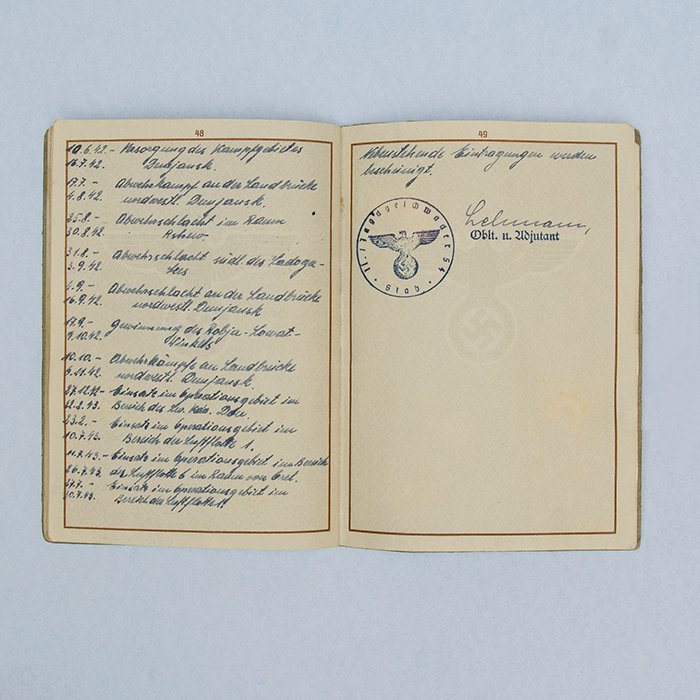 48
10.6.42.- Versorgung des Kampfgebietes
16.7.42. Demjansk.
17.7. - Abwehrkampf an der Landbrücke
4.8.42. nordwestl. Demjansk.
25.8. - Abwehrschlacht im Raum
30.8.42. Rshew.
31.8. - Abwehrschlacht südl. des Ladoga-
3.9.42. Sees
4.9. - Abwehrschlacht an der Landbrücke
16.9.42. nordwestl. Demjansk
17.9. - Gewinnung des Robja-Lowat-
9.10.42. Winkels
10.10. - Abwehrkämpfe an Landbrücke
nordwestl. Demjansk.
27.12.42 - Einsatz im Operationsgebiet im
22.2.43. Bereich des Lw. Kdo. Don.
23.2. - Einsatz im Operationsgebiet im
10.7.43. Bereich der Luftflotte 1.
11.7.43. - Einsatz im Operationsgebiet im Bereich
26.7.43. der Luftflotte 6 im Raum von Orel.
27.7. - Einsatz im Operationsgebiet im
30.7.43. Bereich der Luftflotte 1.
49
Nebenstehende Eintragungen werden
bescheinigt.
II./Jagdgeschwader 54
Stab.
Lehmann,
Oblt. u. Adjutant